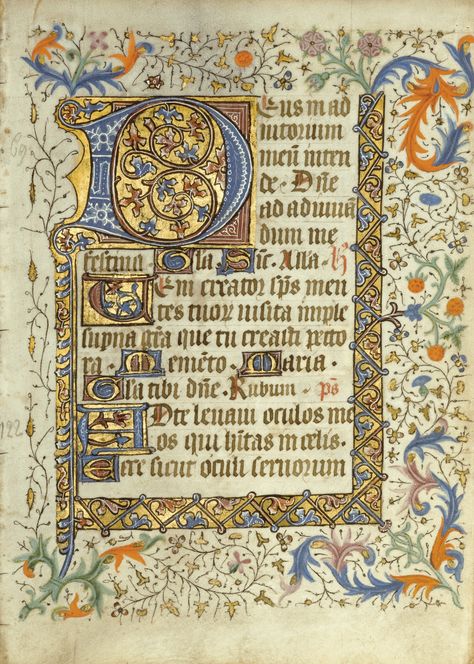 Deus in ad
iutorium
meū inten
de. Dñe
ad adiuuā
dum me
festina. Gla Sic̄. Alla. h̄
Ueni creator sp̄s men
tes tuor̄ uisita imple
supna gr̄a que tu creasti pecto
ra. Memēto. Maria.
Gla tibi dñe. Rubum. ps̄
Ad te leuaui oculos me
os qui h̄itas in celis.
Ecce sicut oculi seruorum
122